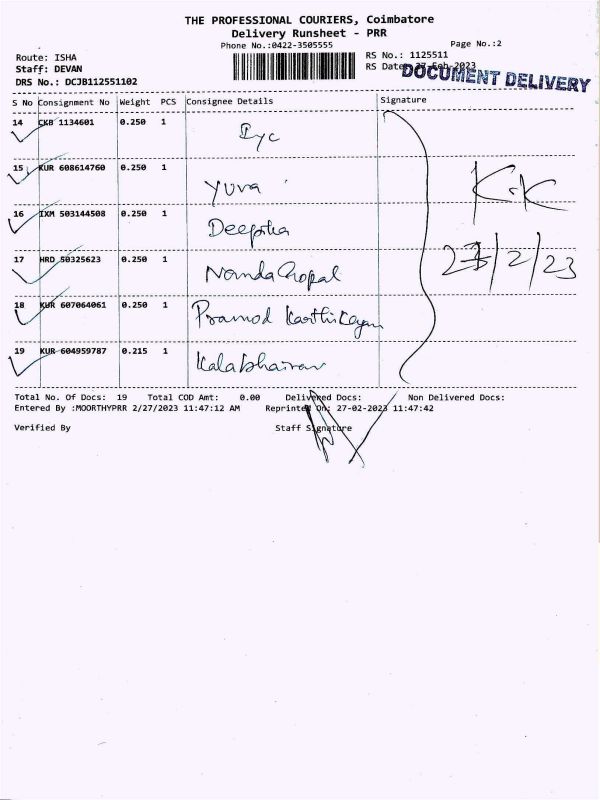 THE PROFESSIONAL COURIERS, Coimbatore
Delivery Runsheet - PRR
Phone No.:0422-3505555
Page No.:2
Route: ISHA
RS No.: 1125511
Staff: DEVAN
RS Date: 27-Feb-2023
DOCUMENT DELIVERY
DRS No.: DCJB112551102
S No Consignment No Weight PCS Consignee Details Signature
14 CKB 1134601 0.250 1
15 KUR 608614760 0.250 1 Yuva
K.K
16 IXM 503144508 0.250 1 Deepsha
27/2/23
17 HRD 50325623 0.250 1 NandaGopal
18 KUR 607064061 0.250 1 Pramod Karthikeyan
19 KUR 604959787 0.215 1 Kalabhairav
Total No. Of Docs: 19 Total COD Amt: 0.00 Delivered Docs: Non Delivered Docs:
Entered By :MOORTHYPRR 2/27/2023 11:47:12 AM Reprinted On: 27-02-2023 11:47:42
Verified By Staff Signature